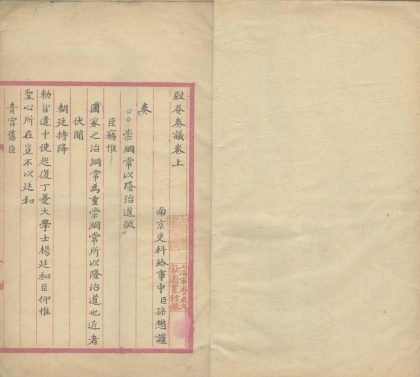 毅菴奏議卷上
南京吏科給事中臣孫懋謹
奏
崇綱常以隆治道疏
臣竊惟
國家之治綱常為重崇綱常所以隆治道也近者
伏聞
朝廷特降
勅旨遣中使起復丁憂大學士楊廷和臣仰惟
聖心所在豈不以廷和
青宮舊臣